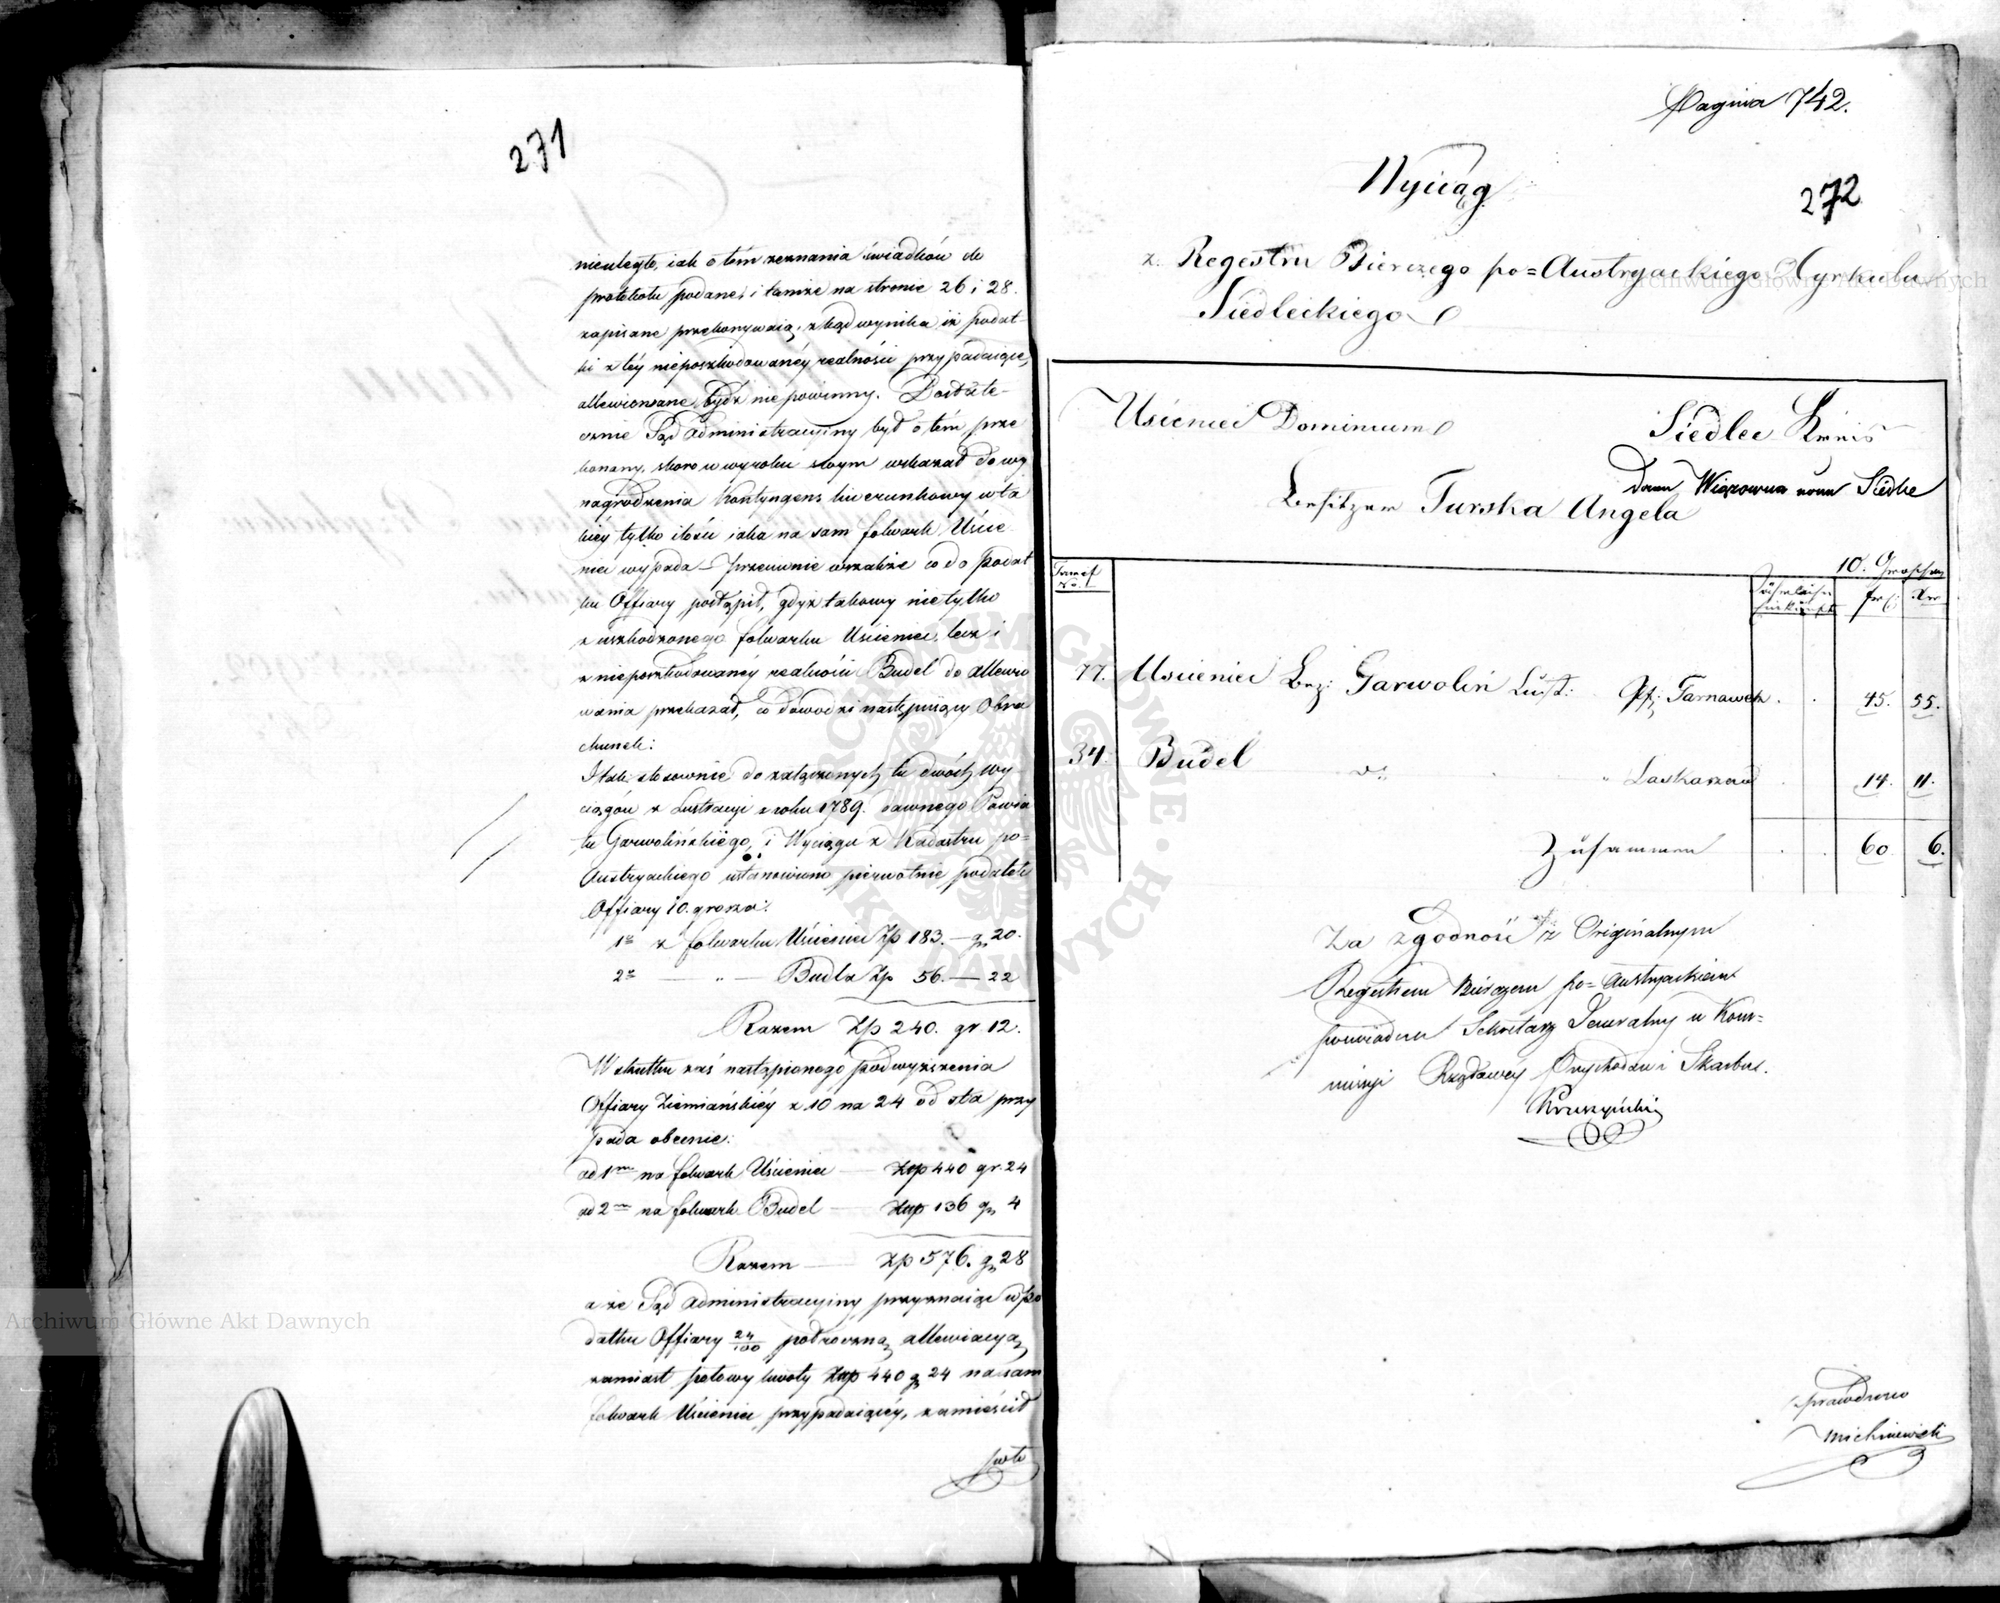 271
nieuległe, iak o tém zeznania świadków do
protokołu podane, i tamże na stronie 26 i 28.
zapisane przekonywaią, zkąd wynika iż podat-
ki z téy nieposzkodowanéy realności przypadaiące,
allewiowane bydź nie powinny. Dostate-
cznie Sąd administracyiny był o tém prze
konany, skoro w wyroku swym wskazał do wy
nagrodzenia Kontyngens liwerunkowy w ta
kiéy tylko ilości iaka na sam folwark Uście
niec wypada – przeciwnie wszakże co do podat
ku Offiary postąpił, gdyż takowy nietylko
z uszkodzonego folwarku Uścieniec, lecz i
z nieposzkodowanéy realności Budel do allewio
wania przekazał, co dowodzi następuiący Obra
chunek:
I tak stosownie do załączonych tu dwóch wy-
ciągów z Lustracyi z roku 1789. dawnego Powia
tu Garwolińskiego, i Wyciągu z Kadastru po-
Austryackiego ustanowiono pierwotnie podatek
Offiary 10. grosza:
1º z folwarku Uścieniec Zp 183. — gr 20.
2º — „ — Budla Zp 56. — 22
Razem Zp 240. gr. 12.
W skutku zaś nastąpionego podwyższenia
Offiary Ziemiańskiéy z 10 na 24 od sta przy
pada obecnie:
ad 1m na folwark Uścieniec — Złp 440 gr. 24
ad 2m na folwark Budel — Złp 136 gr 4
Razem — Zp 576. gr 28
a że Sąd administracyiny przyznaiąc w po
datku Offiary 24/100 półroczną allewiacyą
zamiast połowy kwoty Złp 440 gr 24 na sam
folwark Uścieniec przypadaiącéy, zamieścił
Pagina 742.
Wyciąg
272
z Regestru Bierczego po=Austryackiego Cyrkułu
Siedleckiego
Uscieniec Dominium
Siedlec Kreis
dann Wiązowna nunn Siedlce
Besitzer Turska Angela
10. Groschen
77. Uscieniec Bez: Garwolin Lust: Pf: Tarnawek . . 45. 55.
34. Budel do „ Laskarzew . 14. 11.
Zusammen . . 60 6.
Za zgodność z Originalnym
Regestrem Bierczem po=Austryackiem
poświadcza Sekretarz Jeneralny w Kom-
missyi Rządowey Przychodów i Skarbu.
Kruszyński
Sprawdzono
Michniewski
Archiwum Główne Akt Dawnych
Archiwum Główne Akt Dawnych
ARCHIWUM GŁÓWNE AKT DAWNYCH